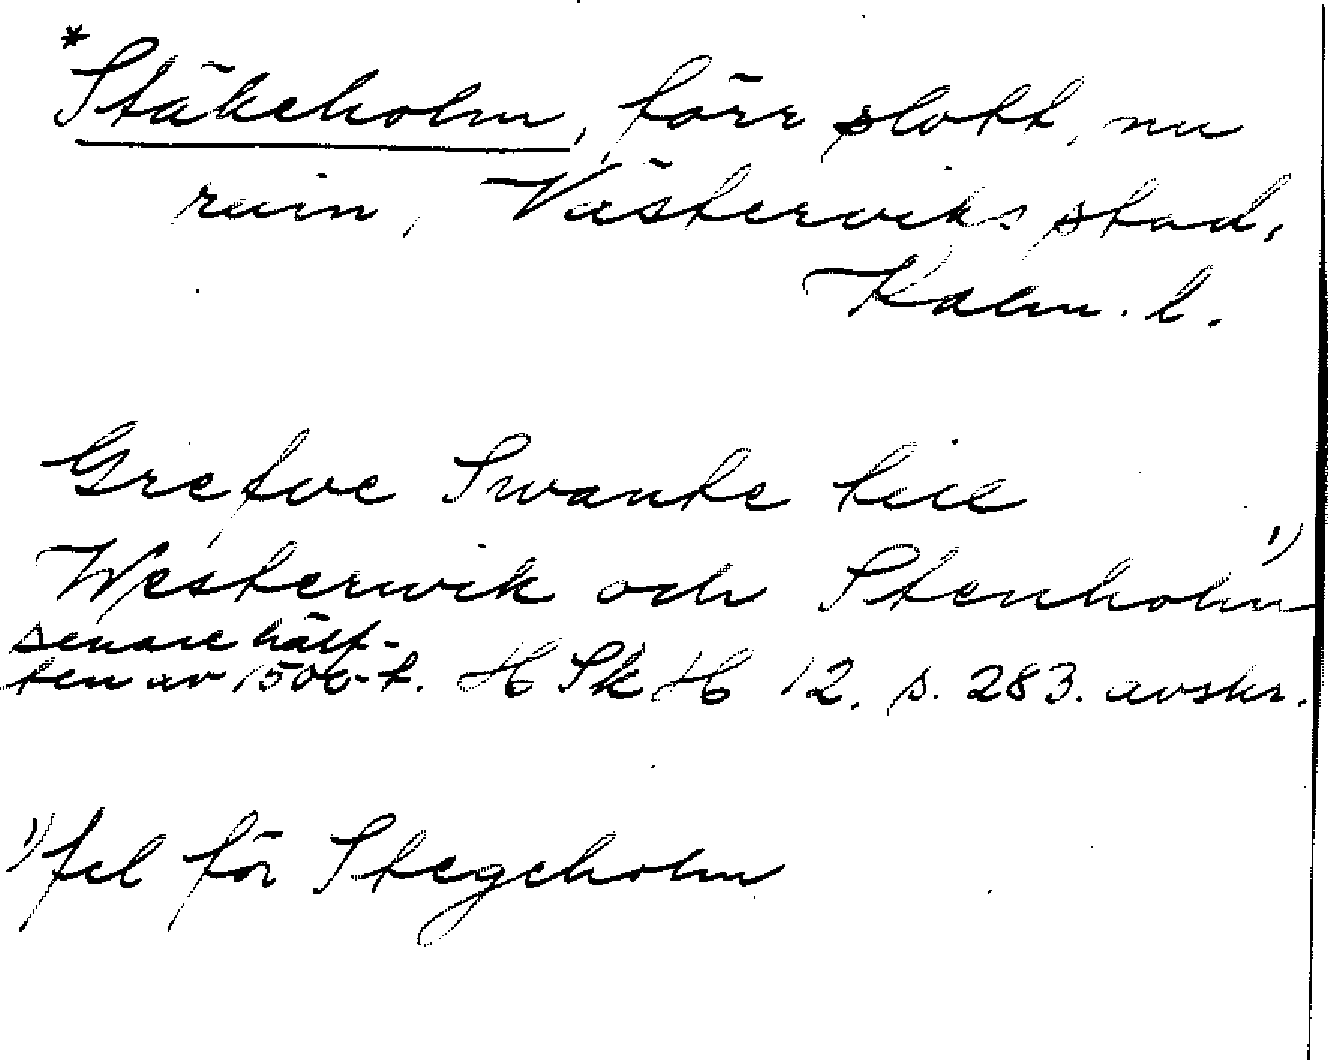 *Stäkeholm, förr slott, nu
ruin, Västerviks stad,
Kalm. l.
Grefve Swante till
Westerwik och Stenholm 1)
senare hälf-
ten av 1500-t. H Sk H 12. s. 283. avskr.
1) fel för Stegeholm